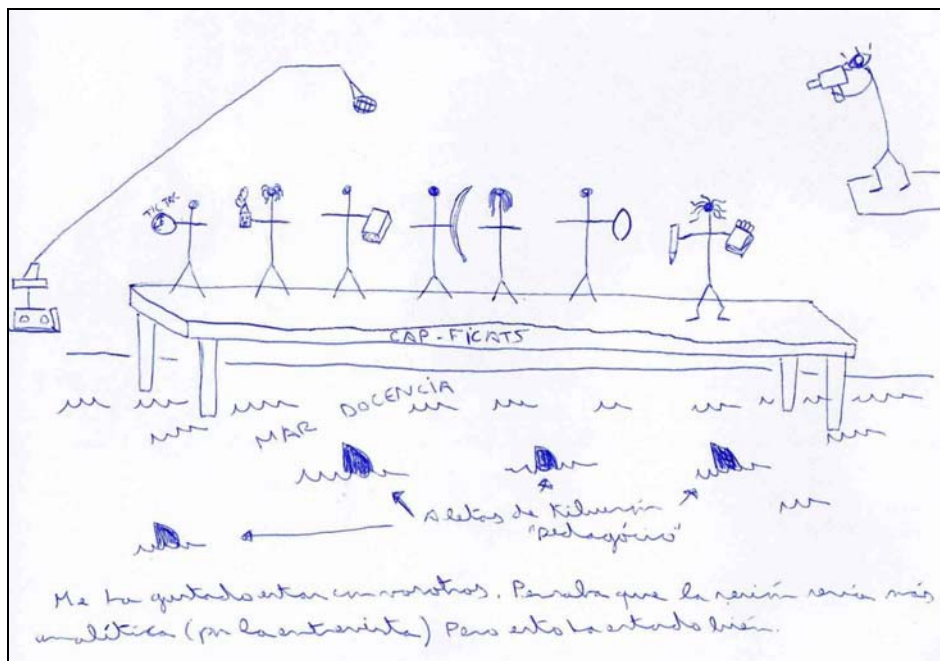 TIC TAC
CAP-FICATS
MAR DOCENCIA
Aletas de tiburón
"pedagógico"
Me ha gustado estar con vosotros. Pensaba que la sesión sería más
analítica (por la entrevista) Pero esto ha estado bien.